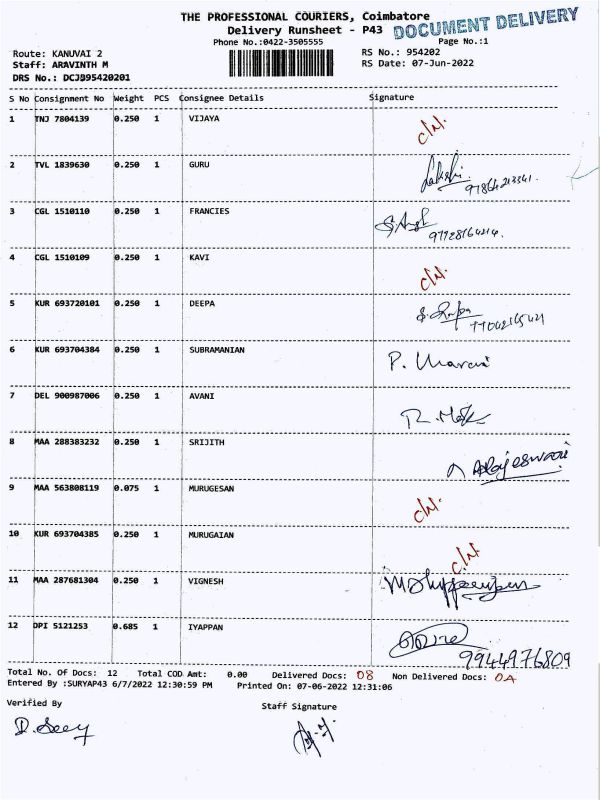 THE PROFESSIONAL COURIERS, Coimbatore
DOCUMENT DELIVERY
Delivery Runsheet - P43
Phone No.:0422-3505555
Page No.:1
Route: KANUVAI 2
RS No.: 954202
Staff: ARAVINTH M
RS Date: 07-Jun-2022
DRS No.: DCJB95420201
S No Consignment No Weight PCS Consignee Details Signature
1 TNJ 7804139 0.250 1 VIJAYA C/N.
2 TVL 1839630 0.250 1 GURU
3 CGL 1510110 0.250 1 FRANCIES
4 CGL 1510109 0.250 1 KAVI C/N.
5 KUR 693720101 0.250 1 DEEPA
6 KUR 693704384 0.250 1 SUBRAMANIAN
7 DEL 900987006 0.250 1 AVANI
8 MAA 288383232 0.250 1 SRIJITH
9 MAA 563808119 0.075 1 MURUGESAN C/N.
10 KUR 693704385 0.250 1 MURUGAIAN C/N
11 MAA 287681304 0.250 1 VIGNESH
12 DPI 5121253 0.685 1 IYAPPAN
9944976809
Total No. Of Docs: 12 Total COD Amt: 0.00 Delivered Docs: 08 Non Delivered Docs: 04
Entered By :SURYAP43 6/7/2022 12:30:59 PM Printed On: 07-06-2022 12:31:06
Verified By Staff Signature